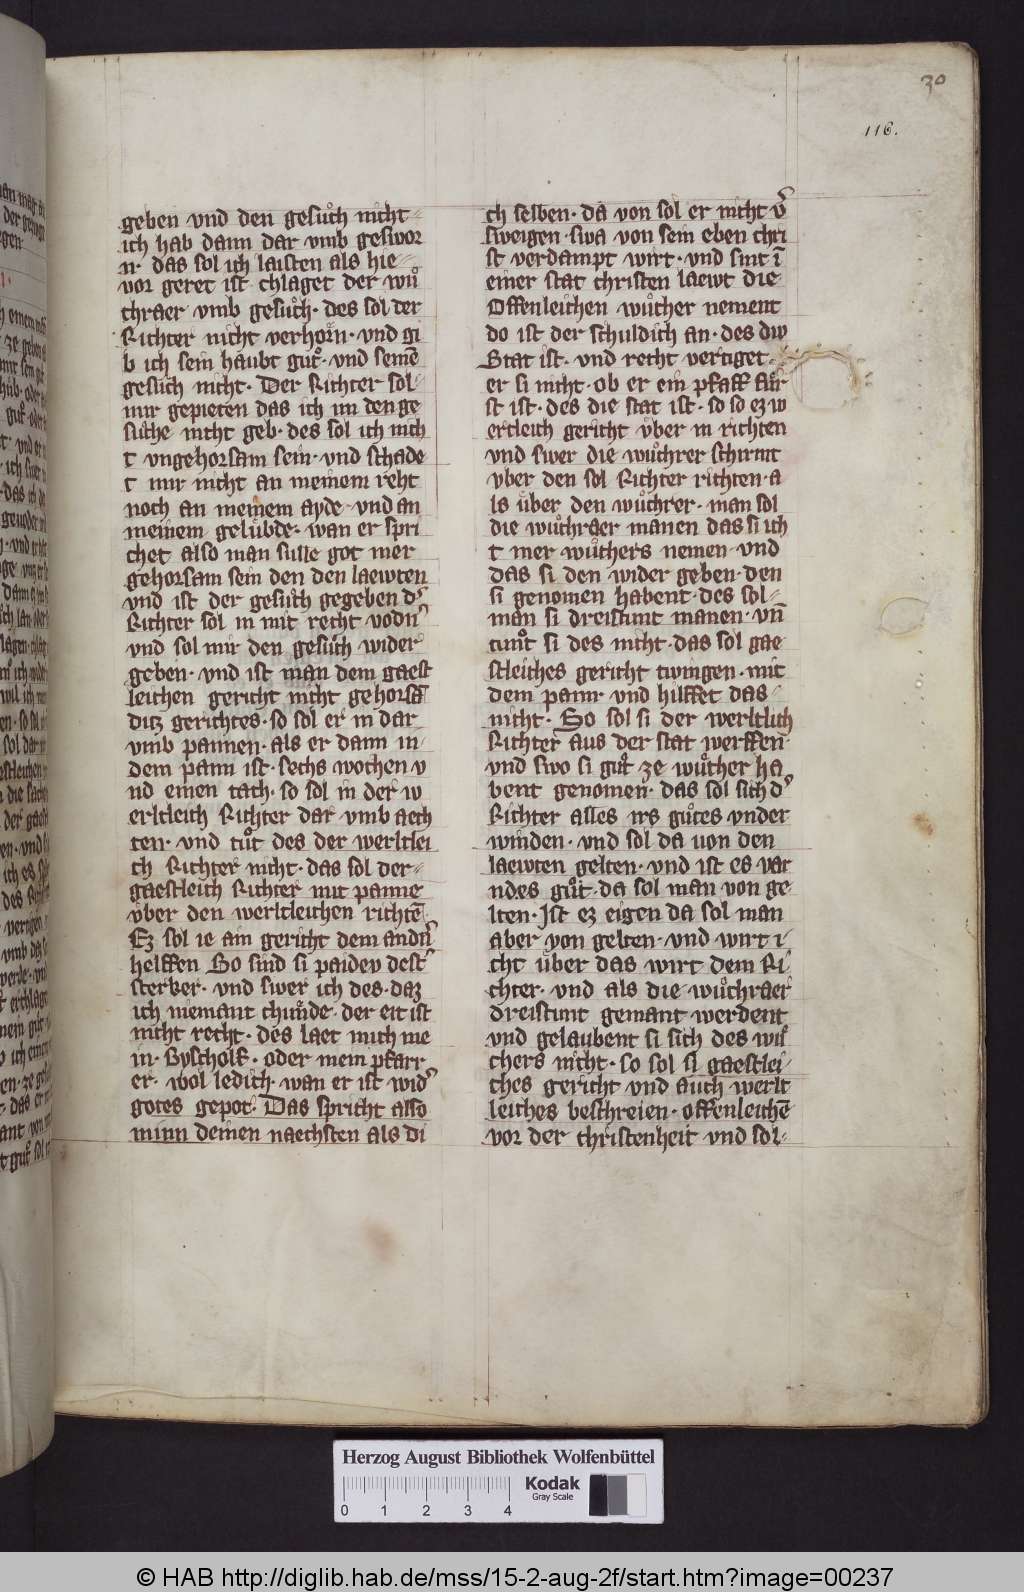 30
116.
geben vnd den gesuͦch nicht
ich hab dann dar vmb geswor
n· das sol ich laisten als hie
vor geret ist chlaget der wuͦ
chraer vmb gesuͦch· des sol der
Richter nicht verhoͤrn· vnd gi
b ich sein haubt guͦt· vnd seinē
gesuͦch nicht· Der Richter sol
mir gepieten das ich im den ge
suͦche nicht geb· des sol ich nich
t vngehorsam sein· vnd schade
t mir nicht an meinem reht
noch an meinem ayde· vnd an
meinem gelubde· wan er spri
chet also man sulle got mer
gehorsam sein den den laewten
vnd ist der gesuͦch gegeben dˀ
Richter sol in mit recht vodnˀ
vnd sol mir den gesuͦch wider
geben· vnd ist man dem gaest
leichen gericht nicht gehorsā
ditz gerichtes· so sol er in dar
vmb pannen· als er dann in
dem pann ist· sechs wochen v
nd einen tach· so sol in der w
erltleich Richter dar vmb aech
ten· vnd tuͦt des der werltlei
ch Richter nicht· das sol der
gaestleich Richter mit panne
vber den werltleichen richtē
Ez sol ie ain gericht dem andnˀ
helffen So sind si paidev dest
sterker· vnd swer ich des· daz
ich niemant chunde· der eit ist
nicht recht· des laet mich me
in· Byscholf· oder mein pfarr
er· wol ledich· wan er ist widˀ
gotes gepot· Das spricht also
minn deinen naechsten als di
ch selben· da von sol er nicht vˀ
sweigen· swa von sein eben chri
st verdampt wirt· vnd sint ī
einer stat christen laewt die
Offenleichen wuͦcher nement
do ist der schuldich an· des diw
Stat ist· vnd recht vertiget
er si nicht· ob er ein pfaff fuͤr
st ist· des die stat ist· so so ez w
ertleich gericht vber in richten
vnd swer die wuͦchrer schirmt
vber den sol Richter richten· a
ls vber den wuͦchrer· man sol
die wuͦchraer manen das si ich
t mer wuͦchers nemen· vnd
das si den wider geben· den
si genomen habent· des sol
man si dreistunt manen· vn̄
tunt si des nicht· das sol gae
stleiches gericht twingen· mit
dem pann· vnd hilffet das
nicht· So sol si der werltlich
Richter aus der stat werffen·
vnd swo si guͦt ze wuͦcher ha
bent genomen· das sol sich dˀ
Richter alles irs guͦtes vnder
winden· vnd sol da uon den
laewten gelten· vnd ist es var
ndes guͦt· da sol man von ge
lten· Ist ez eigen da sol man
aber von gelten· vnd wirt i
cht vber das wirt dem Ri
chter· vnd als die wuͦchraer
dreistunt gemant werdent
vnd gelaubent si sich des wuͦ
chers nicht· so sol si gaestlei
ches gericht vnd auch werlt
leiches beschreien· offenleichē
vor der christenheit vnd sol
Herzog August Bibliothek Wolfenbüttel
0 1 2 3 4
Kodak
Gray Scale
© HAB http://diglib.hab.de/mss/15-2-aug-2f/start.htm?image=00237